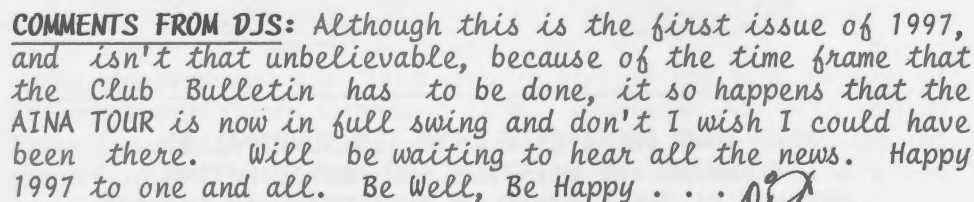 COMMENTS FROM DJS: Although this is the first issue of 1997,
and isn't that unbelievable, because of the time frame that
the Club Bulletin has to be done, it so happens that the
AINA TOUR is now in full swing and don't I wish I could have
been there. Will be waiting to hear all the news. Happy
1997 to one and all. Be Well, Be Happy . . .